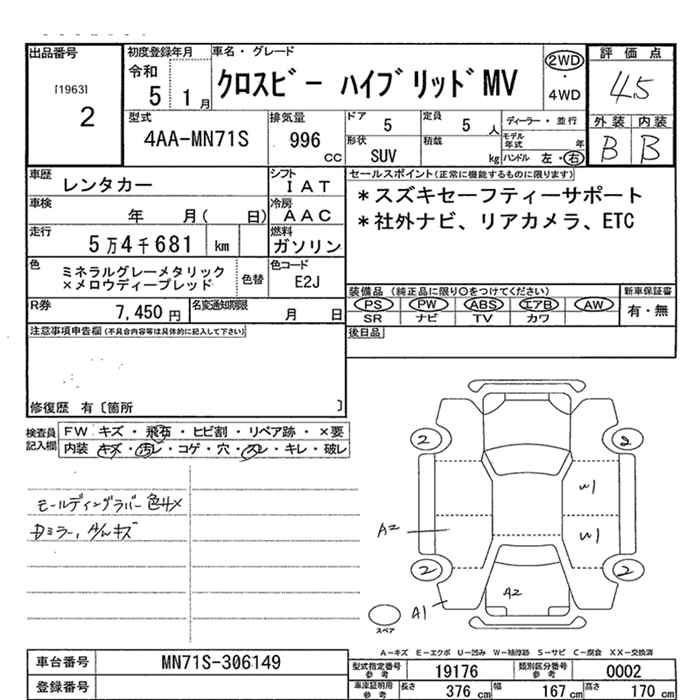 出品番号
[1963]
2
初度登録年月
令和
5 1月
車名・グレード
クロスビー ハイブリッドMV
2WD
・
4WD
評価点
4.5
外装 内装
B B
型式
4AA-MN71S
排気量
996
CC
ドア
5
定員
5 人
形状
SUV
積載
kg
ディーラー・並行
モデル年式 年
ハンドル 左・右
車歴
レンタカー
シフト
IAT
車検
年 月( 日)
冷房
AAC
走行
5万4千681 km
燃料
ガソリン
色
ミネラルグレーメタリック
×メロウディープレッド
色替
色コード
E2J
R券
7,450円
名変通知期限
月 日
セールスポイント(正常に機能するものに限ります)
*スズキセーフティーサポート
*社外ナビ、リアカメラ、ETC
装備品(純正品に限り○をつけてください)
PS PW ABS エアB AW
SR ナビ TV カワ
新車保証書
有・無
後日品
注意事項申告欄(不具合内容等は具体的に記入して下さい)
修復歴 有〔箇所 〕
検査員
記入欄
FW キズ・飛石・ヒビ割・リペア跡・×要
内装 キズ・汚レ・コゲ・穴・スレ・キレ・破レ
モールディングラバー色ヌメ
Dミラー、A/Wキズ
2 2
W1
A2 W1
2 2
A2
A1
スペア
A-キズ E-エクボ U-凹み W-補修跡 S-サビ C-腐食 XX-交換済
車台番号
MN71S-306149
登録番号
型式指定番号
参考
19176
類別区分番号
参考
0002
車庫証明用
参考
長さ 376 cm
幅 167 cm
高さ 170 cm